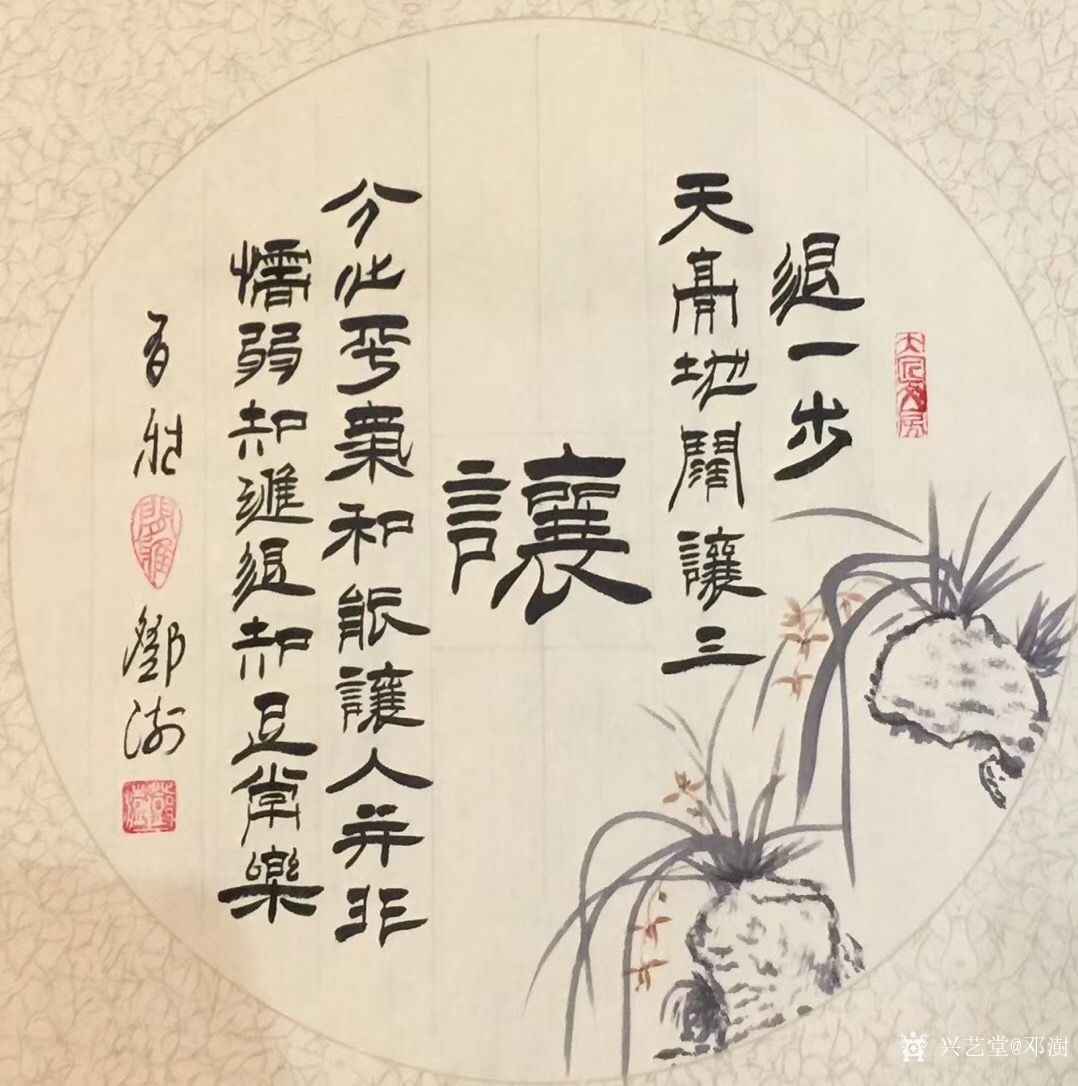 退一步
天高地闊讓三
讓
分心平氣和能讓人并非
懦弱知進退知足常樂
鄧澍
兴艺堂@邓澍